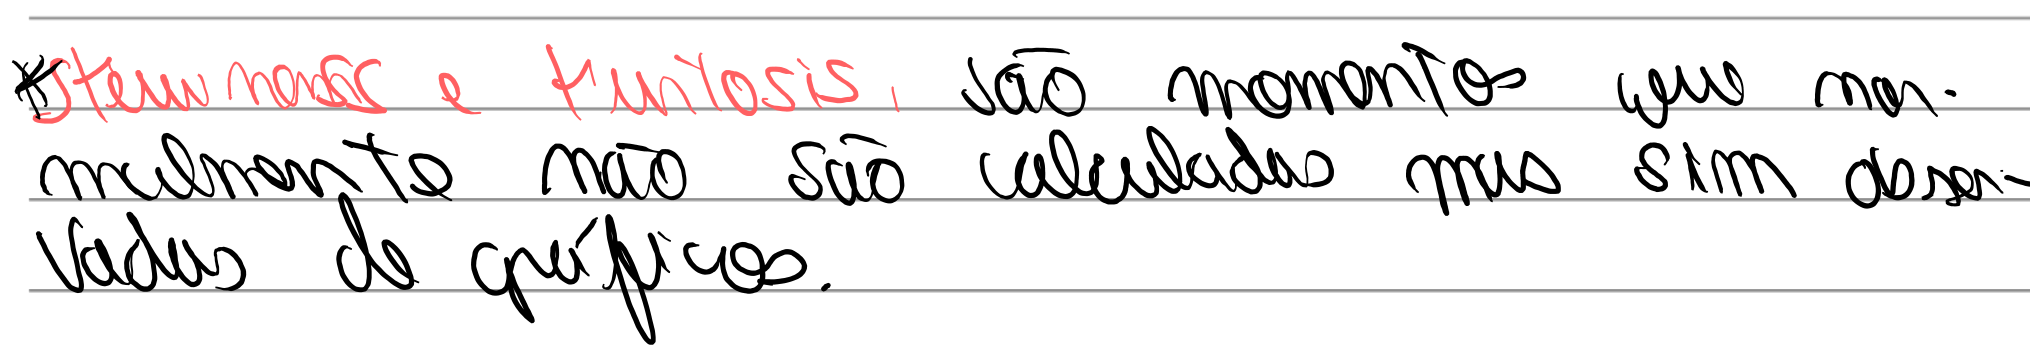 *Skewness e kurtosis, são momentos que nor-
malmente não são calculadas mas sim obser-
vadas de gráficos.